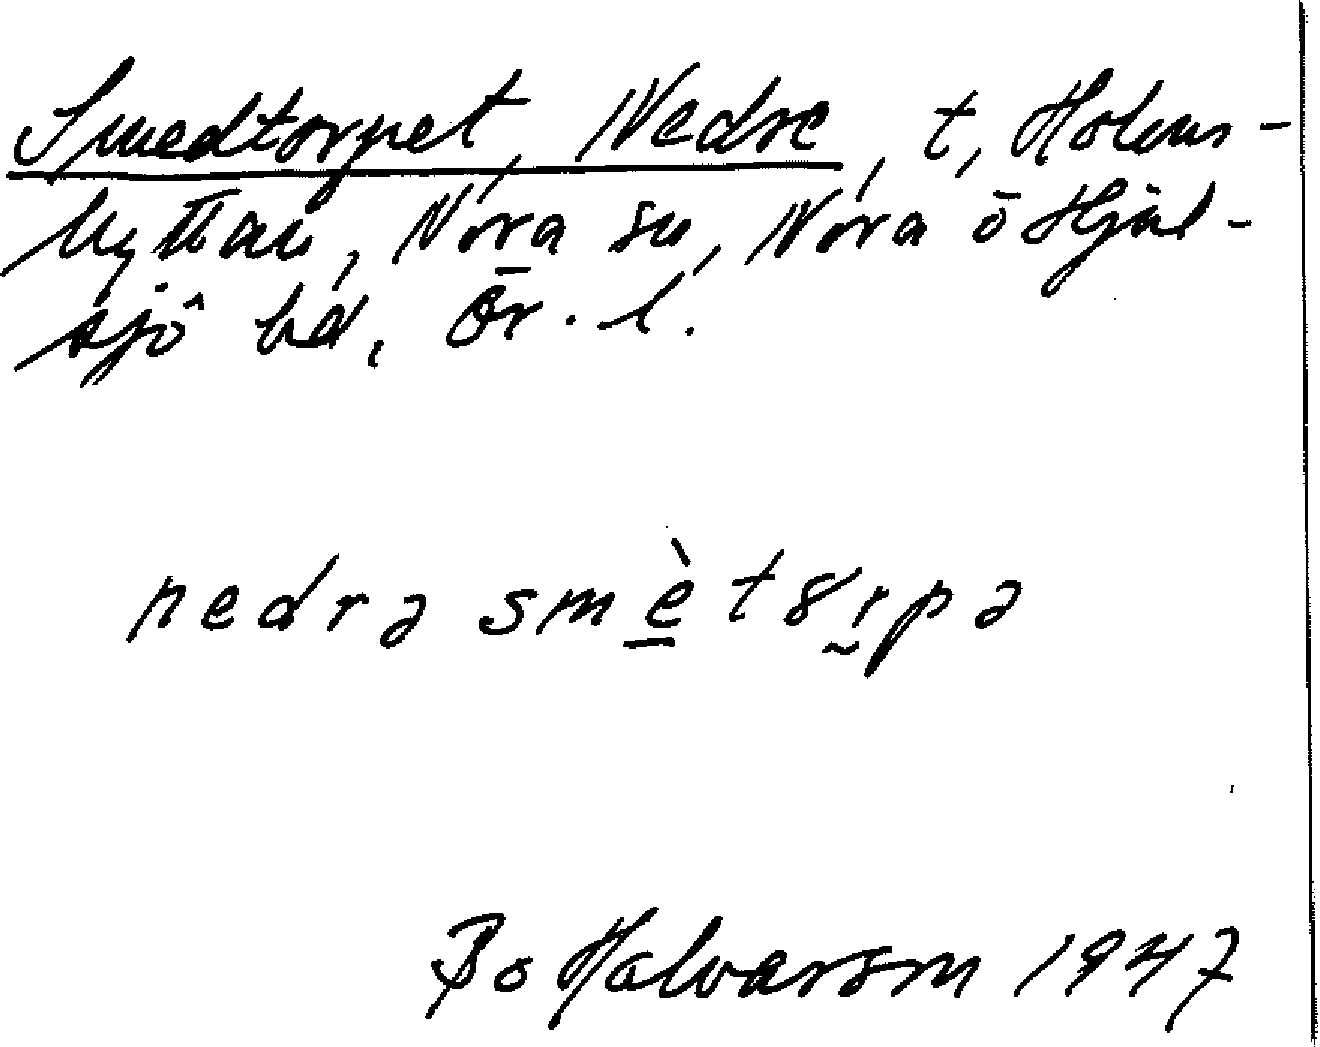 Smedtorpet, Nedre, t, Holms-
hyttan, Nora sn, Nora o Hjul-
sjö bd, Ör. l.
nedrə smè̱t8rpə
Bo Halvarson 1947